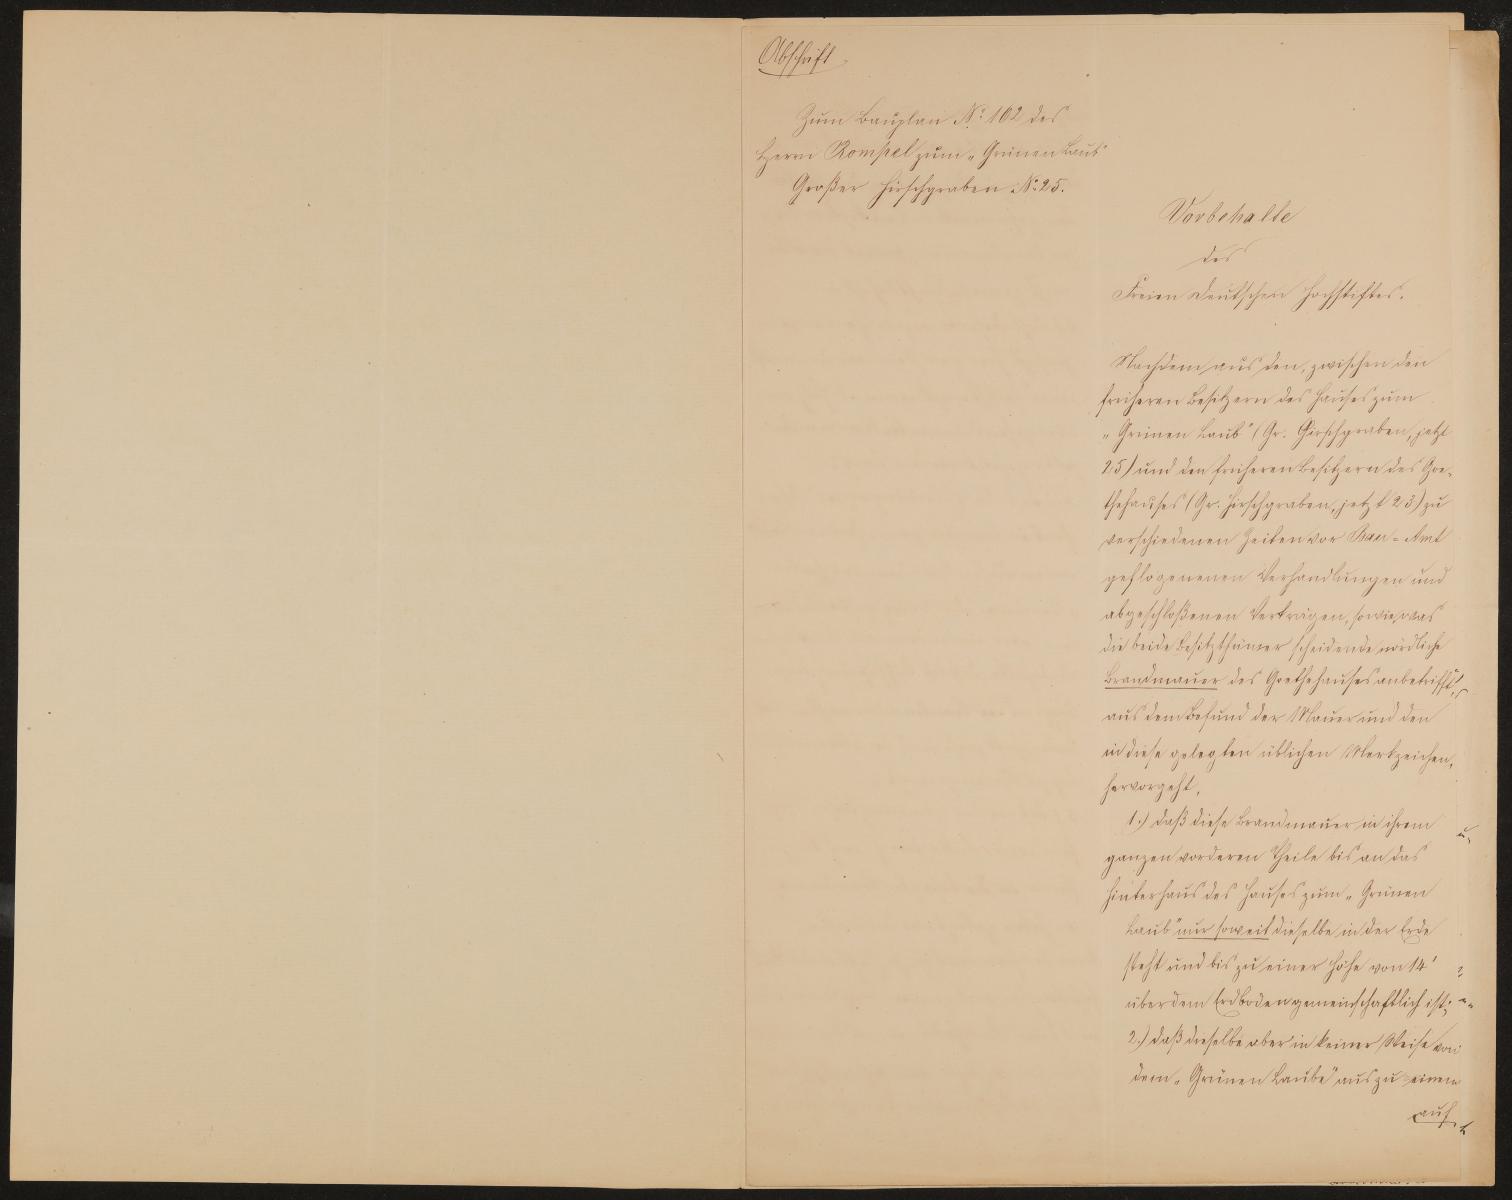 Abschrift
Zum Bauplan No. 162 des
Herrn Rompel zum „Grünen Laub"
Großer Hirschgraben No. 25.
Vorbehalte
des
Freien Deutschen Hochstiftes.
Nachdem aus den, zwischen den
früheren Besitzern des Hauses zum
„Grünen Laub" (Gr. Hirschgraben, jetzt
25) und den früheren Besitzern des Goe-
thehauses (Gr. Hirschgraben, jetzt 23) zu
verschiedenen Zeiten vor Bau-Amt
gepflogenenen Verhandlungen und
abgeschloßenen Verträgen, sowie, was
die beide Besitzthümer scheidende nördliche
Brandmauer des Goethehauses anbetrifft,
aus dem Befund der Mauer und den
in diese gelegten üblichen Merkzeichen,
hervorgeht,
1.) daß diese Brandmauer in ihrem
ganzen vorderen Theile bis an das
Hinterhaus des Hauses zum „Grünen
Laub" nur soweit dieselbe in der Erde
steht und bis zu einer Höhe von 14'
über dem Erdboden gemeinschaftlich ist;
2.) daß dieselbe aber in keiner Weise von
dem „Grünen Laube" aus zu einem
auf